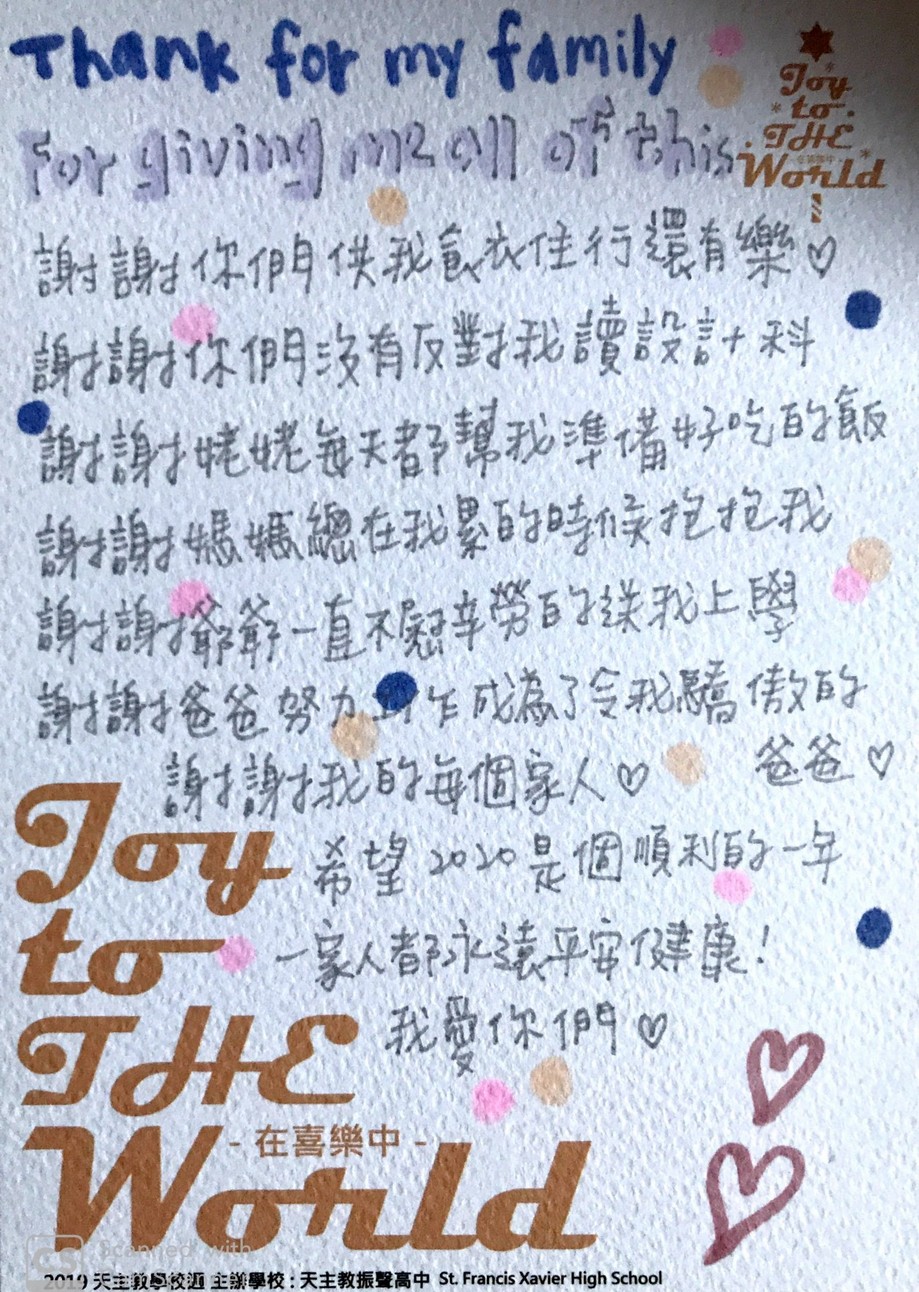 Thank for my family
For giving me all of this
Joy
to
THE
World
謝謝你們供我食衣住行還有樂♡
謝謝你們沒有反對我讀設計科
謝謝姥姥每天都幫我準備好吃的飯
謝謝媽媽總在我累的時候抱抱我
謝謝爺爺一直不辭辛勞的送我上學
謝謝爸爸努力工作成為了令我驕傲的
爸爸♡
謝謝我的每個家人♡
希望2020是個順利的一年
一家人都永遠平安健康!
我愛你們♡
Joy
to
THE
World
- 在喜樂中 -
Scanned with
2019 天主教學校週 主辦學校：天主教振聲高中 St. Francis Xavier High School